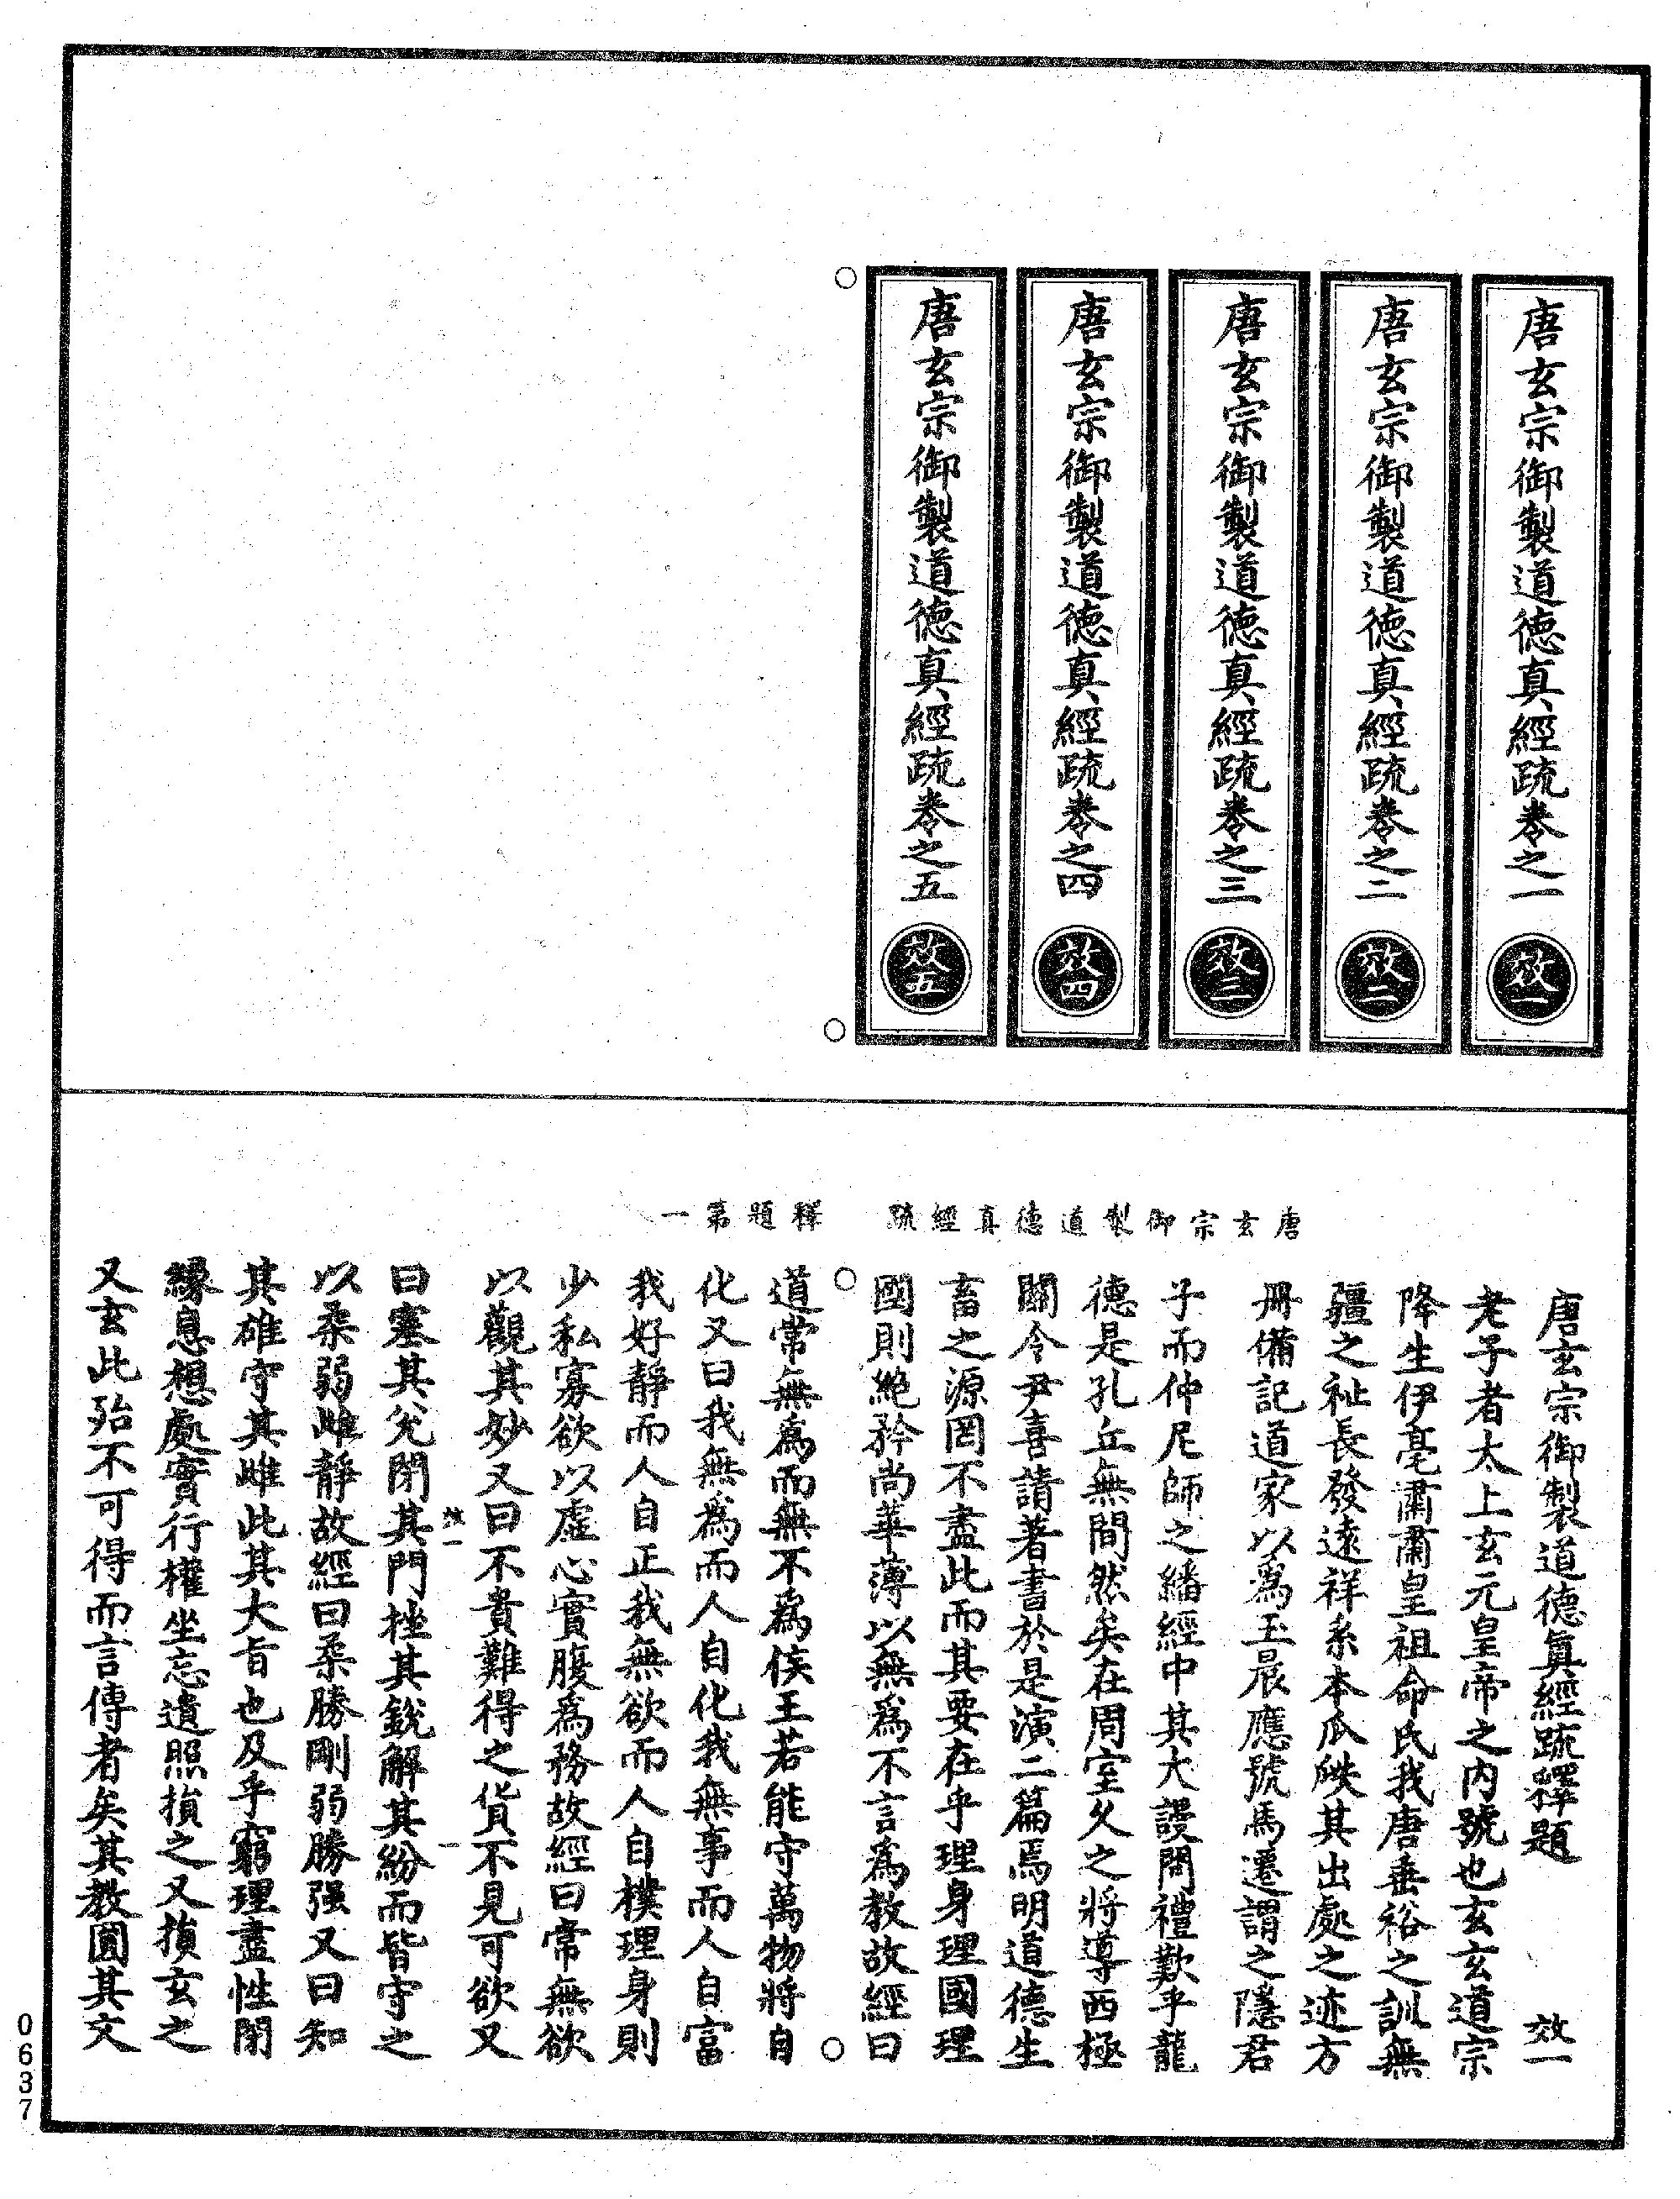 唐玄宗御製道德真經疏卷之一 效一
唐玄宗御製道德真經疏卷之二 效二
唐玄宗御製道德真經疏卷之三 效三
唐玄宗御製道德真經疏卷之四 效四
唐玄宗御製道德真經疏卷之五 效五
唐玄宗御製道德真經疏 釋題第一
唐玄宗御製道德真經疏釋題 效一
老子者太上玄元皇帝之内號也玄玄道宗
降生伊亳肅肅皇祖命氏我唐垂裕之訓無
疆之祉長發遠祥系本瓜瓞其出處之迹方
冊備記道家以為玉晨應號馬遷謂之隱君
子而仲尼師之繙經中其大謾閒禮歎乎龍
德是孔丘無間然矣在周室久之將導西極
關令尹喜請著書於是演二篇焉明道德生
畜之源罔不盡此而其要在乎理身理國理
國則絶矜尚華薄以無為不言為教故經曰
道常無為而無不為侯王若能守萬物將自
化又曰我無為而人自化我無事而人自富
我好靜而人自正我無欲而人自樸理身則
少私寡欲以虛心實腹為務故經曰常無欲
以觀其妙又曰不貴難得之貨不見可欲又
效一 一
曰塞其兊閉其門挫其銳解其紛而皆守之
以柔弱雌靜故經曰柔勝剛弱勝强又曰知
其雄守其雌此其大旨也及乎窮理盡性閉
緣息想處實行權坐忘遺照損之又損玄之
又玄此殆不可得而言傳者矣其教圓其文
0637